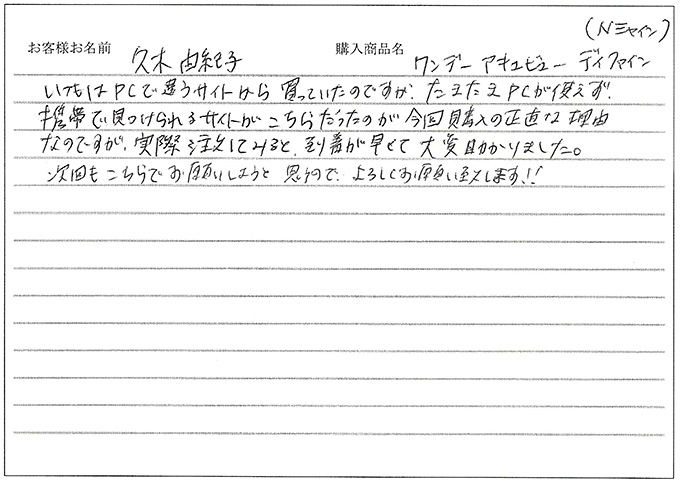 (Nシャイン)
お客様お名前 久木 由紀子 購入商品名 ワンデー アキュビュー ディファイン
いつもはPCで違うサイトから買っていたのですが、たまたまPCが使えず、
携帯で見つけられるサイトがこちらだったのが今回購入の正直な理由
なのですが、実際注文してみると、到着が早くて大変助かりました。
次回もこちらでお願いしようと思うので、よろしくお願い致します!!